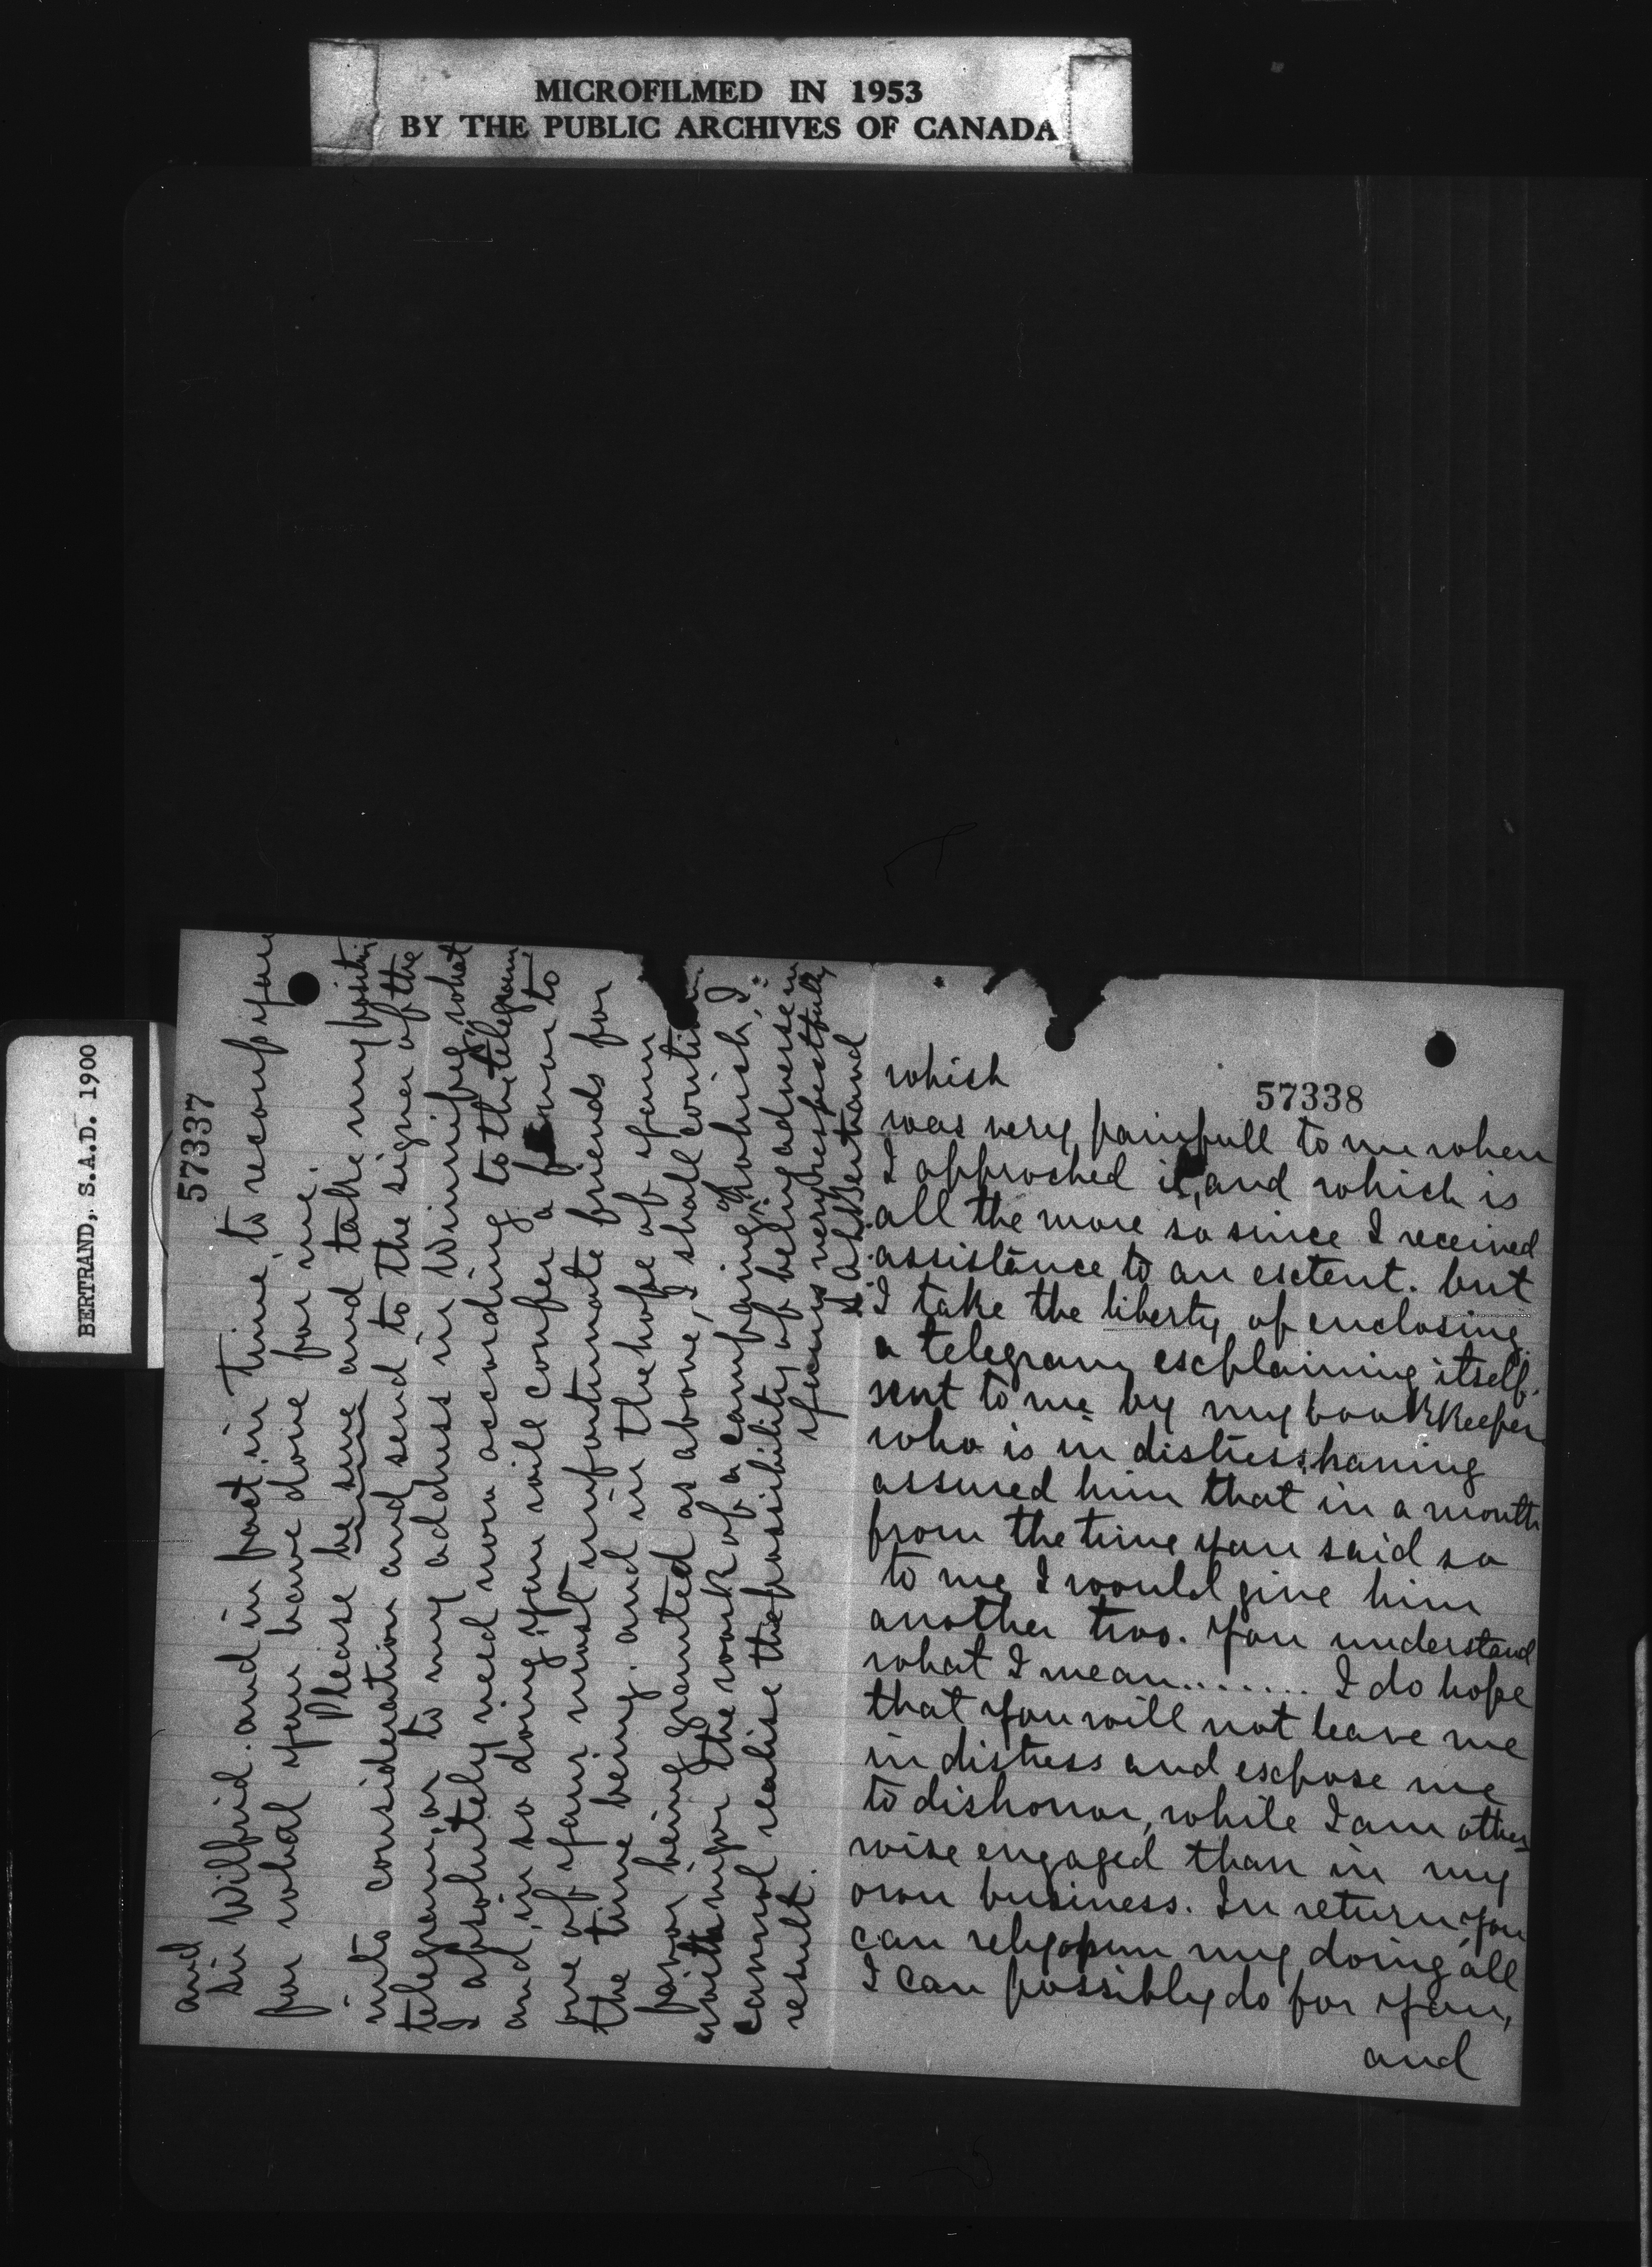 MICROFILMED IN 1953
BY THE PUBLIC ARCHIVES OF CANADA
BERTRAND, S.A.D. 1900
57338
which
was very painfull to me when
I approched it, and which is
all the more so since I received
assistance to an extent. but
I take the liberty of enclosing
a telegram explaining itself.
sent to me by my bookkeeper
who is in distress, having
assured him that in a month
from the time you said so
to me I would give him
another two. You understand
what I mean........ I do hope
that you will not leave me
in distress and expose me
to dishonor, while I am other
wise engaged than in my
own business. In return, you
can rely upon my doing all
I can possibly do for you,
and
57337
and
Sir Wilfrid. and in fact in time, to recoup you
for what you have done for me.
Please be sure and take my positi
into consideration and send to the signer of the
telegram, or to my address in Winnipeg, what
I absolutely need now according to the telegram
and, in so doing, you will confer a favor to
one of your most unfortunate friends for
the time being. and in the hope of your
favor being granted as above, I shall conti
with the work of a campaign, which, I
cannot realise the possibility of being adverse in
result.
Yours very respectfully
S. A. D. Bertrand